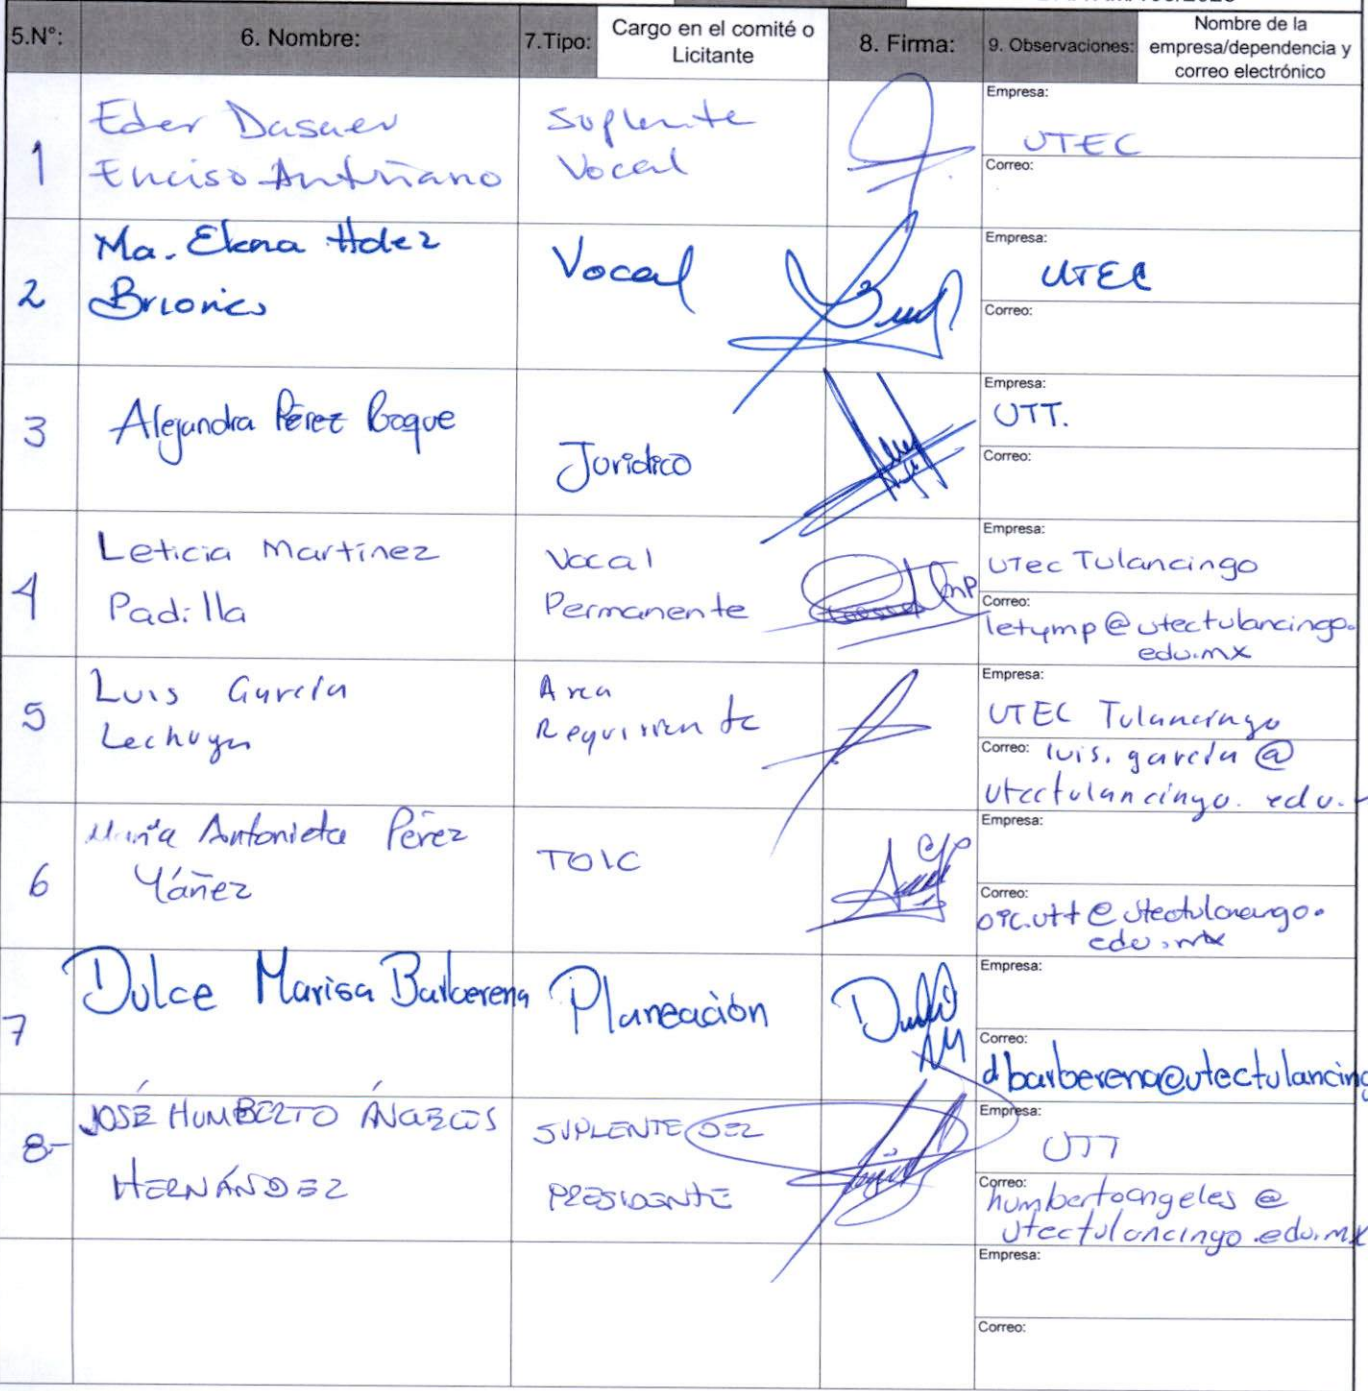 5.N°:
6. Nombre:
7.Tipo:
Cargo en el comité o
Licitante
8. Firma:
9. Observaciones:
Nombre de la
empresa/dependencia y
correo electrónico
1
Eder Dasaev
Enciso Antriano
Suplente
Vocal
Empresa:
UTEC
Correo:
2
Ma. Elena Hdez
Briones
Vocal
Empresa:
UTEC
Correo:
3
Alejandra Pérez Roque
Jurídico
Empresa:
UTT.
Correo:
4
Leticia Martínez
Padilla
Vocal
Permanente
Empresa:
UTec Tulancingo
Correo:
letymp@utectulancingo.
edu.mx
5
Luis García
Lechuga
Area
Requirente
Empresa:
UTEC Tulancingo
Correo: luis.garcia@
utectulancingo.edu.
6
María Antonieta Pérez
Yáñez
TOIC
Empresa:
Correo:
oic.utt@utectulancingo.
edu.mx
7
Dulce Marisa Barberena
Planeación
Empresa:
Correo:
dbarberena@utectulancing
8-
JOSÉ HUMBERTO ÁNGELES
HERNÁNDEZ
SUPLENTE DEL
PRESIDENTE
Empresa:
UTT
Correo:
humbertoangeles@
utectulancingo.edu.mx
Empresa:
Correo: